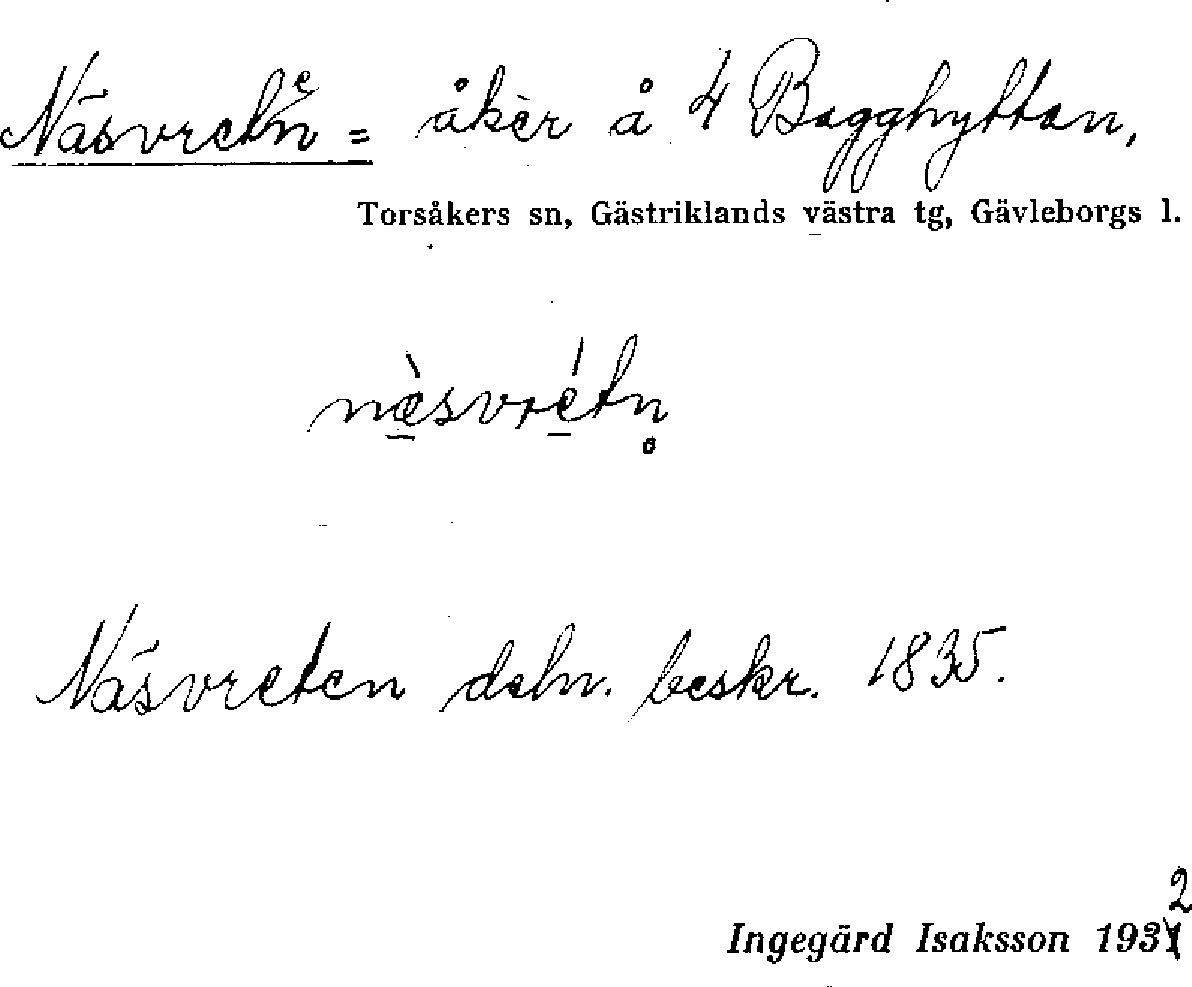 Näsvreten = åker å 4 Bagghyttan,
Torsåkers sn, Gästriklands västra tg, Gävleborgs l.
næ̀svrétn̥
Näsvreten dsln. beskr. 1835.
Ingegärd Isaksson 1932